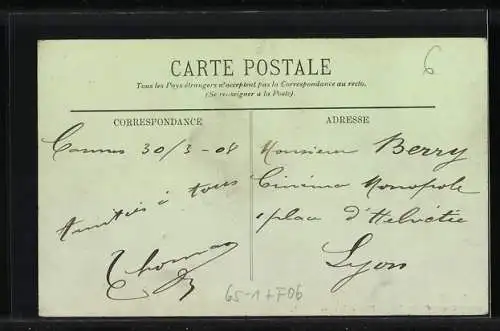 6
CARTE POSTALE
Tous les Pays étrangers n'acceptent pas la Correspondance au recto.
(Se renseigner à la Poste).
CORRESPONDANCE
Cannes 30/3-08
Amitiés à tous
Thomas
ADRESSE
Monsieur Berry
Cinéma Monopole
place d'Helvétie
Lyon
65-1+F06